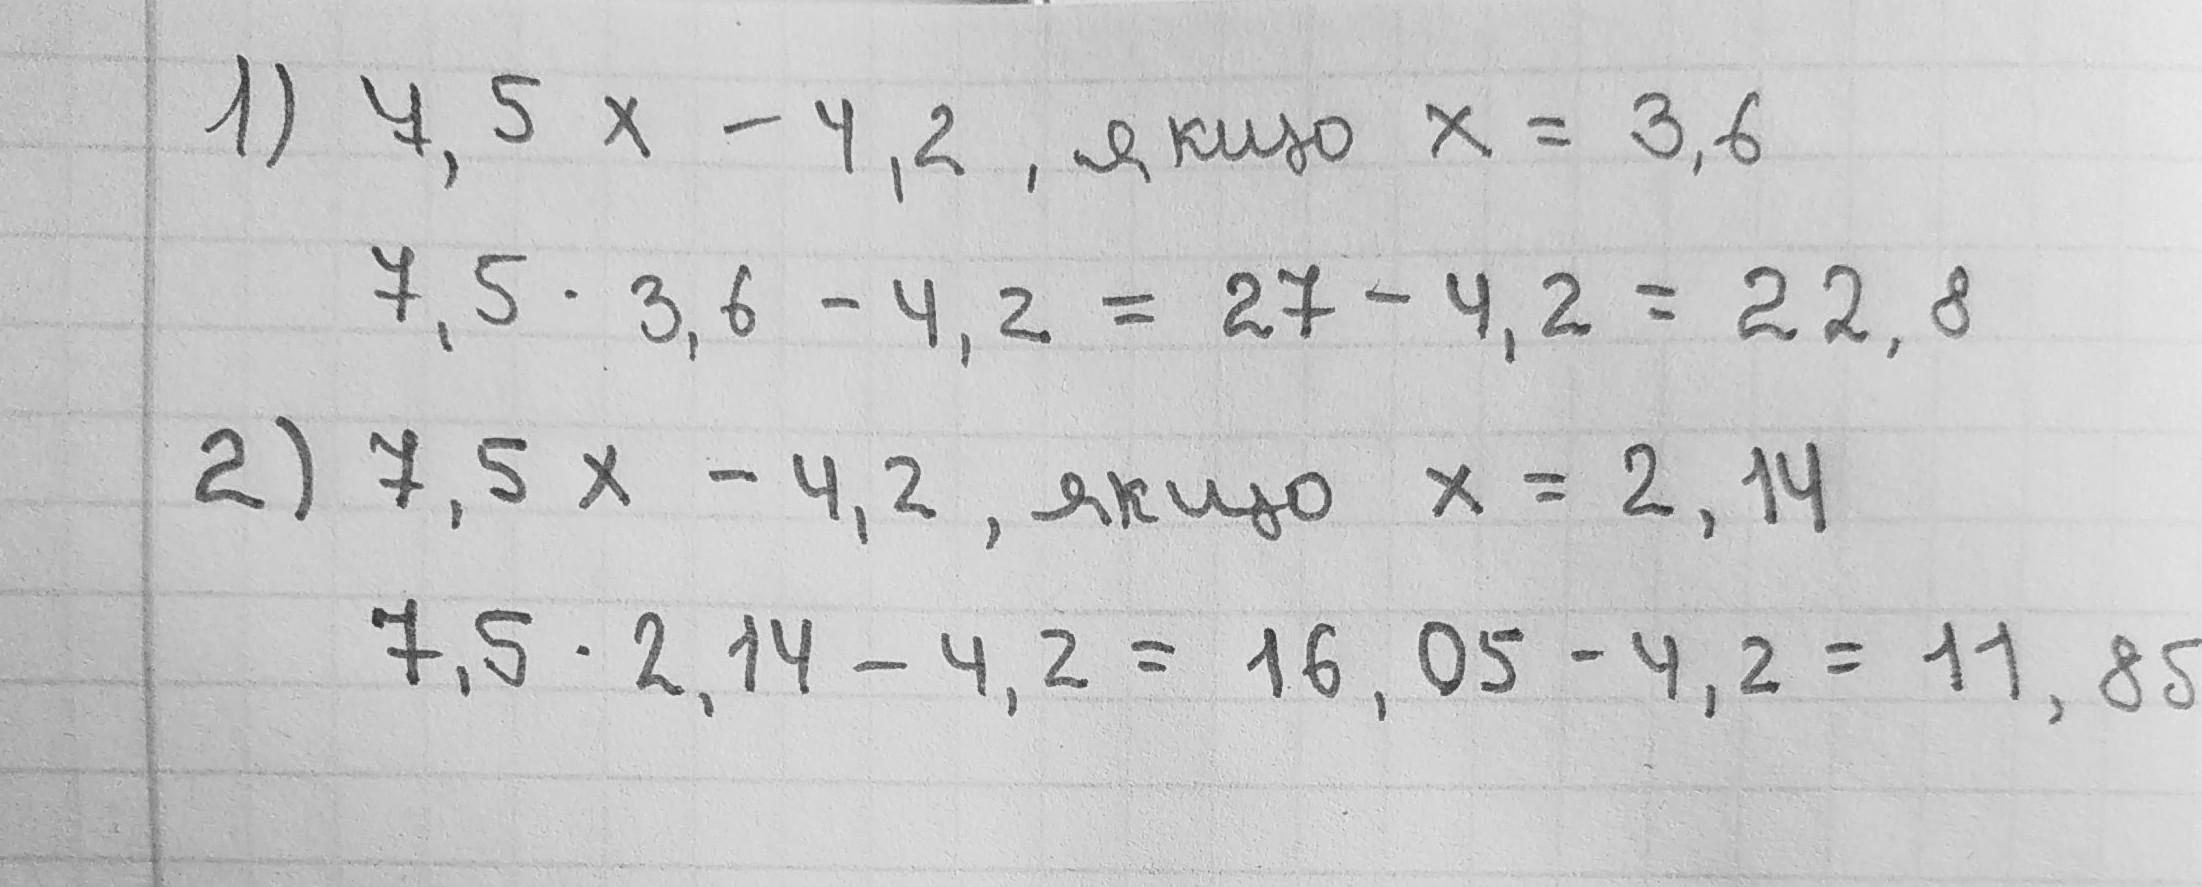 1) 7,5 x - 4,2, якщо x = 3,6
7,5 · 3,6 - 4,2 = 27 - 4,2 = 22,8
2) 7,5 x - 4,2, якщо x = 2,14
7,5 · 2,14 - 4,2 = 16,05 - 4,2 = 11,85